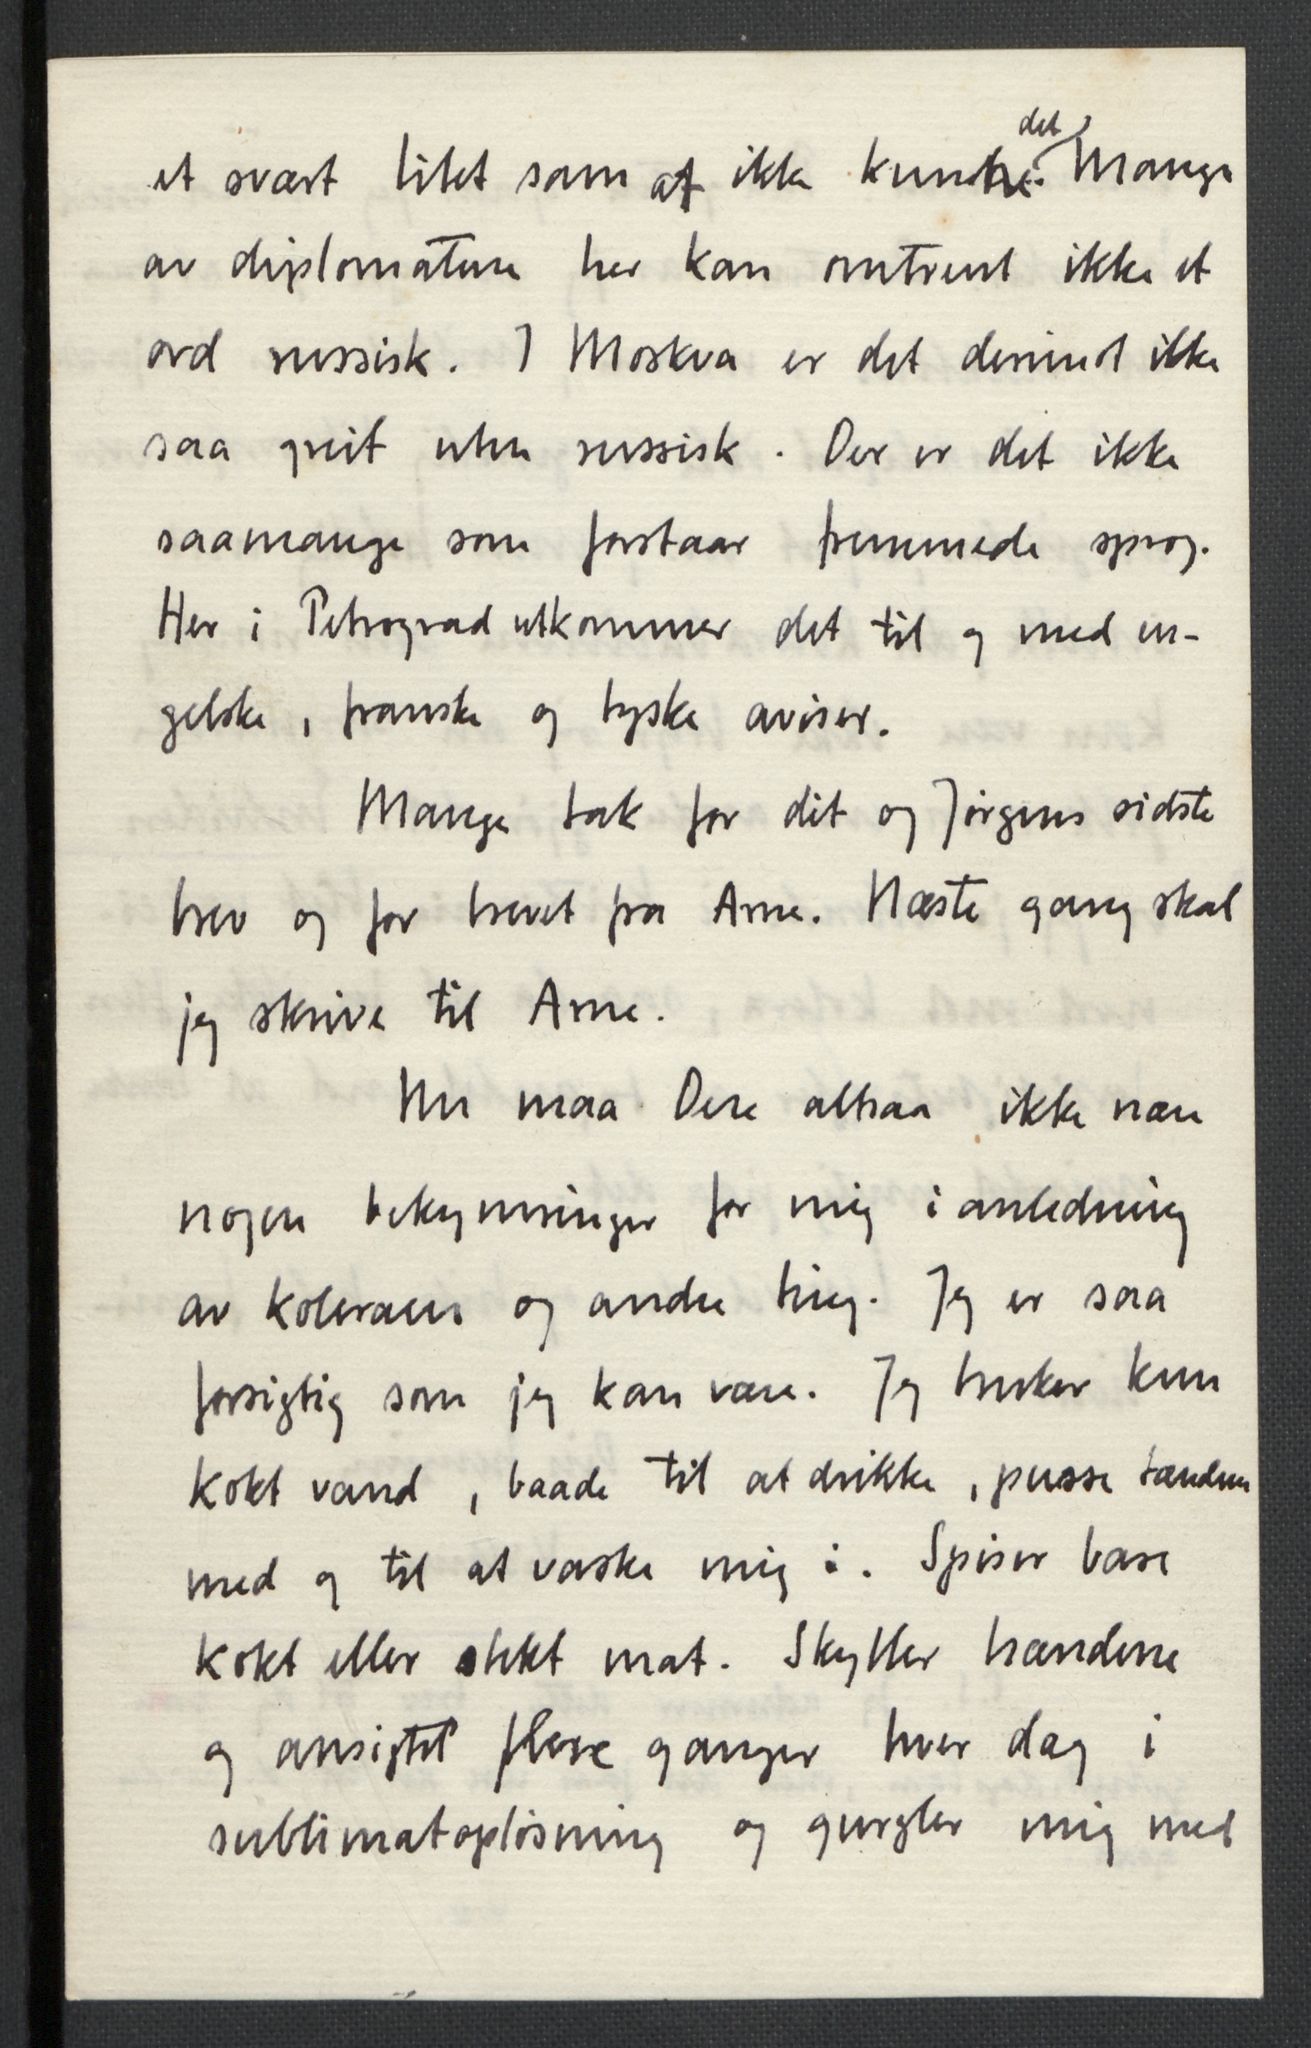 et svært litet som at ikke kunne det. Mange
av diplomatene her kan omtrent ikke et
ord russisk. I Moskva er det derimot ikke
saa greit uten russisk. Der er det ikke
saamange som forstaar fremmede sprog.
Her i Petrograd utkommer det til og med en-
gelske, franske og tyske aviser.
Mange tak for dit og Jørgens sidste
brev og for brevet fra Arne. Næste gang skal
jeg skrive til Arne.
Nu maa Dere altsaa ikke nære
nogen bekymringer for mig i anledning
av koleraen og andre ting. Jeg er saa
forsigtig som jeg kan være. Jeg bruker kun
kokt vand, baade til at drikke, pusse tændene
med og til at vaske mig i. Spiser bare
kokt eller stekt mat. Skyller hænderne
og ansigtet flere ganger hver dag i
sublimatopløsning og gurgler mig med